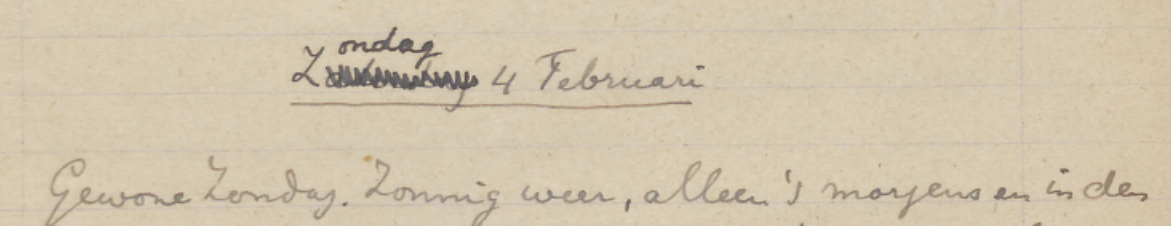 Zondag 4 Februari
Gewone Zondag. Zonnig weer, alleen 's morgens en in den